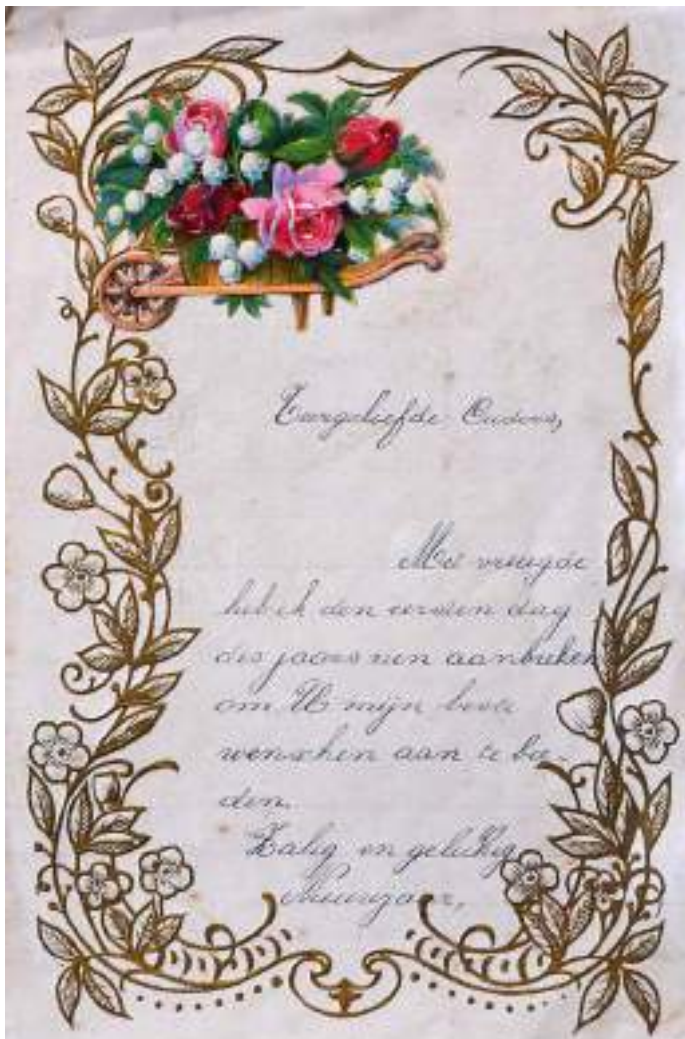 Teergeliefde Ouders,
Met vreugde
heb ik den eersten dag
des jaars zien aanbreken
om U mijn beste
wenschen aan te bie-
den.
Zalig en gelukkig
Nieuwjaar,